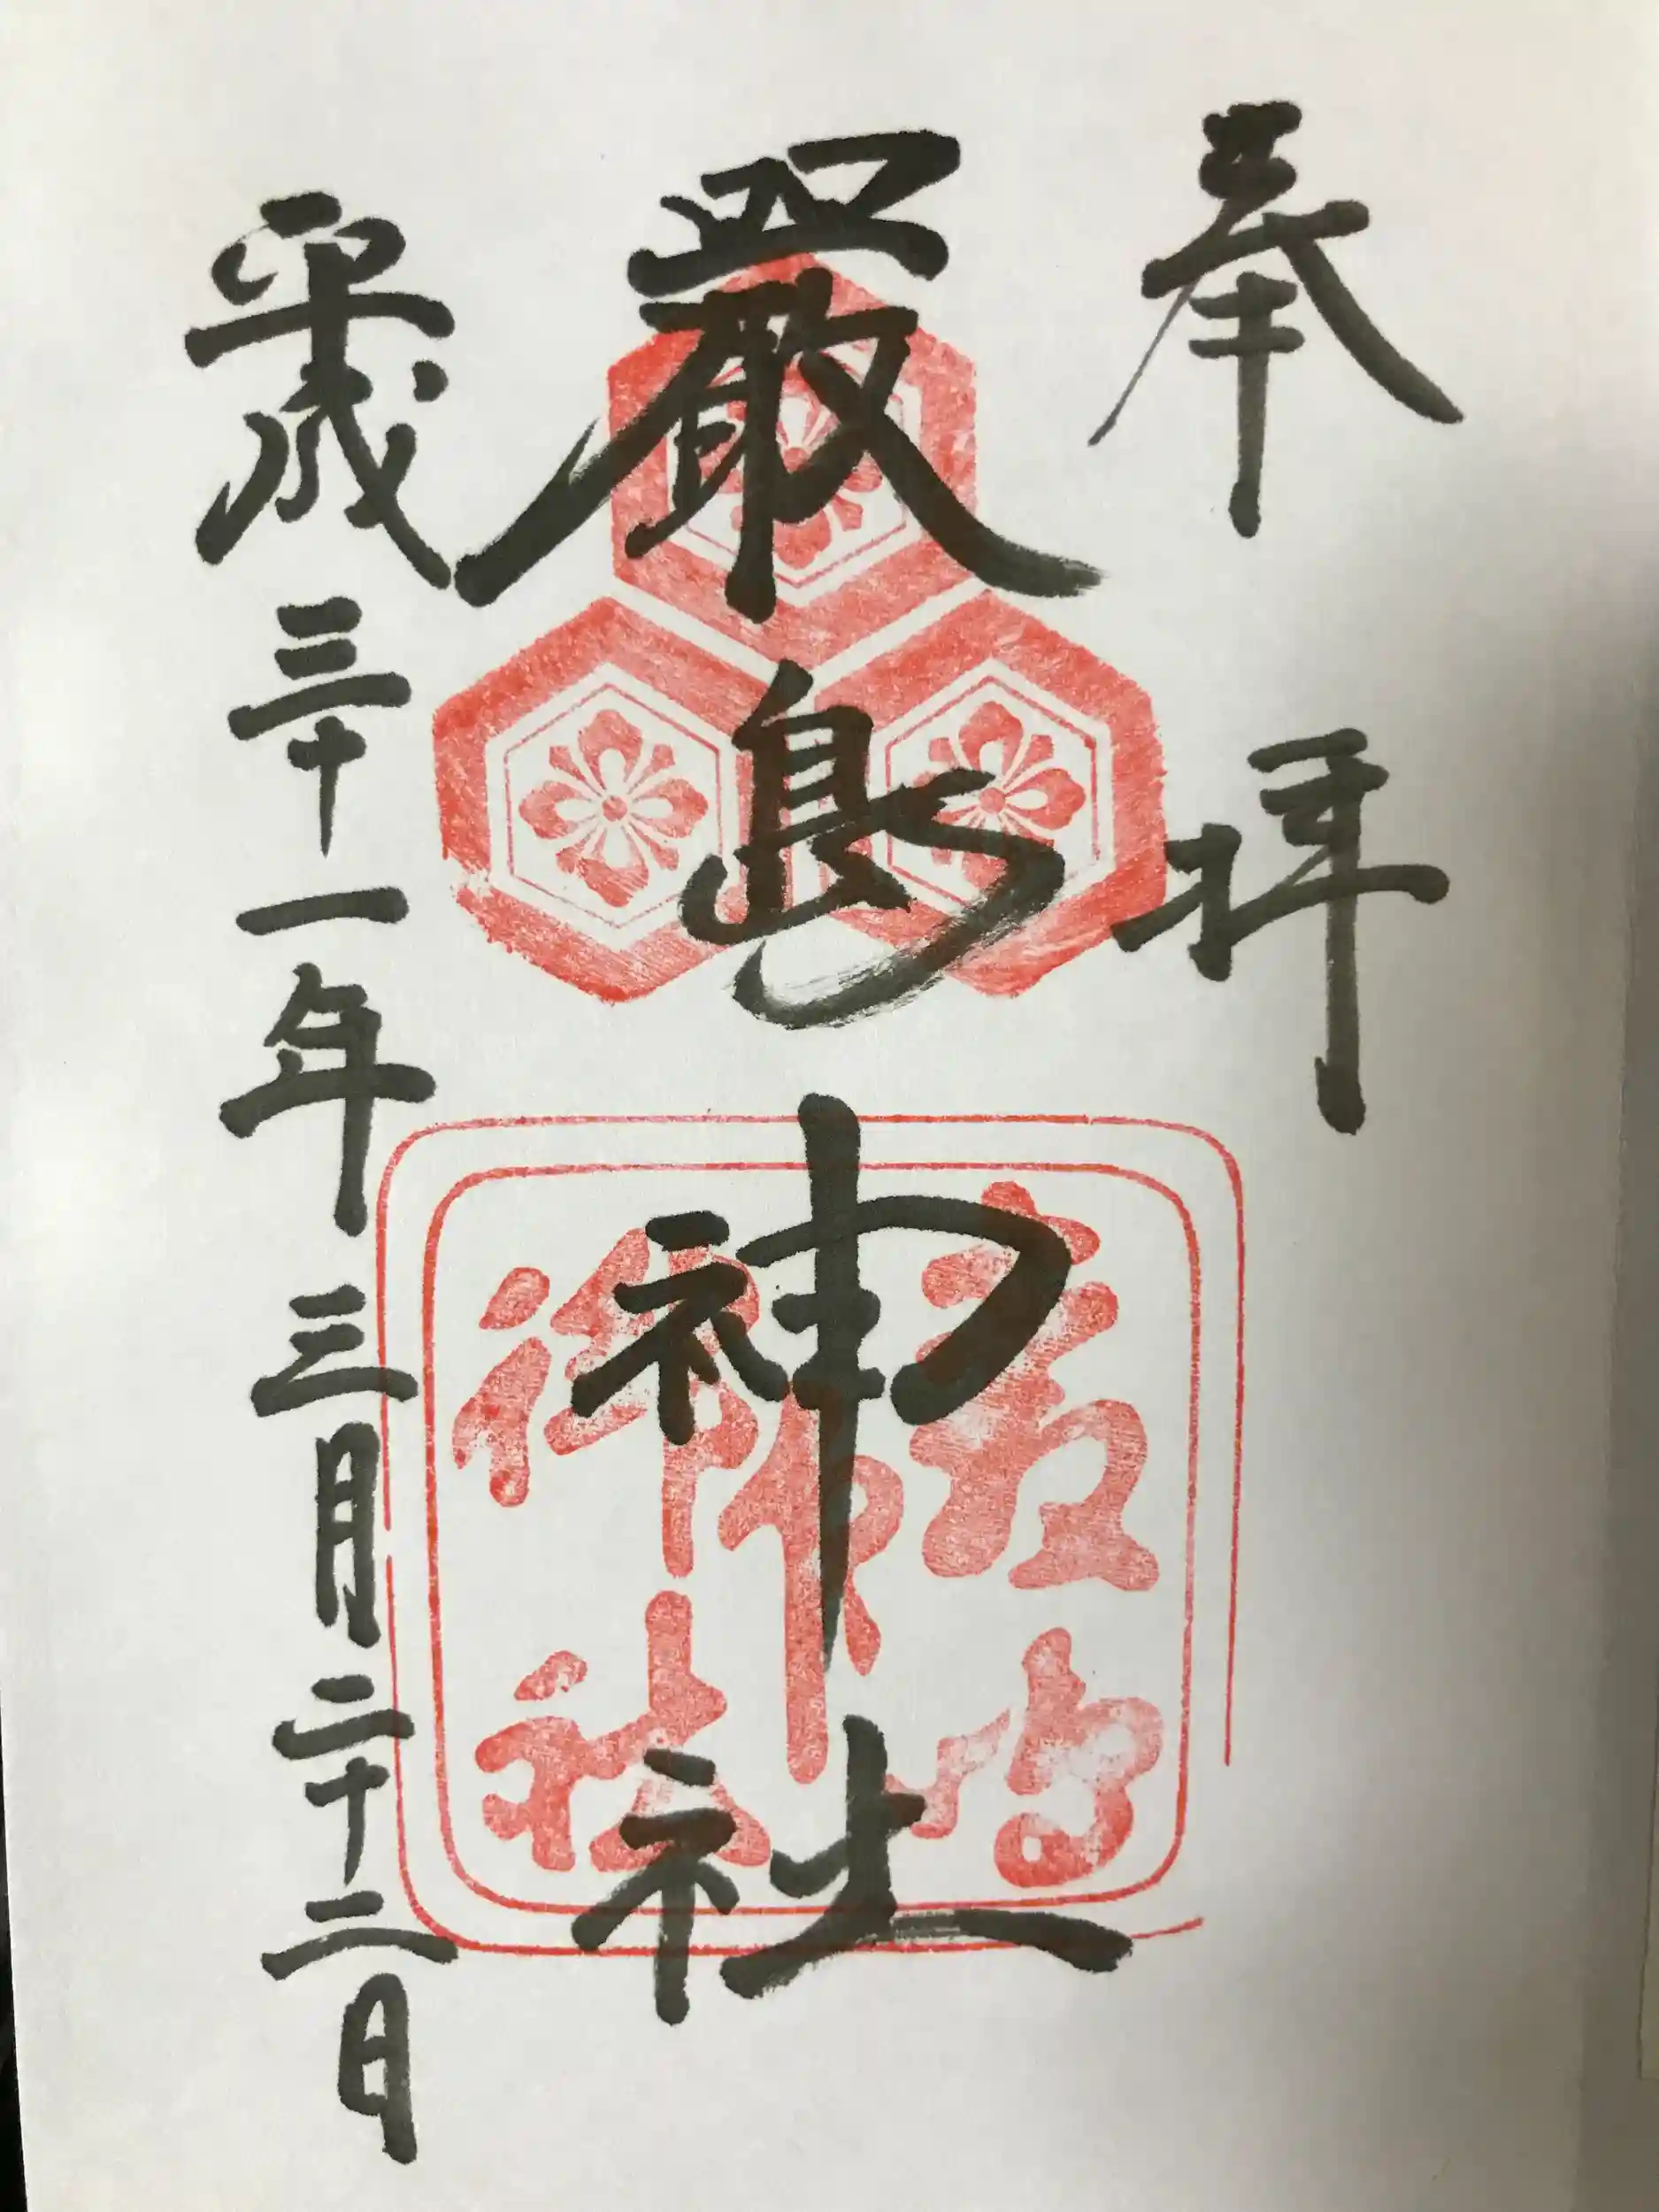 奉拝
厳島神社
平成三十一年三月二十二日
厳嶋
御社